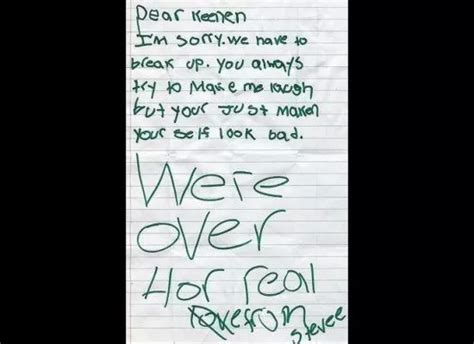 Dear Keenen
I'm sorry. we have to
break up. you always
try to Make me laugh
but your Just Maken
your self look bad.
We're
over
for real
love from
stevee